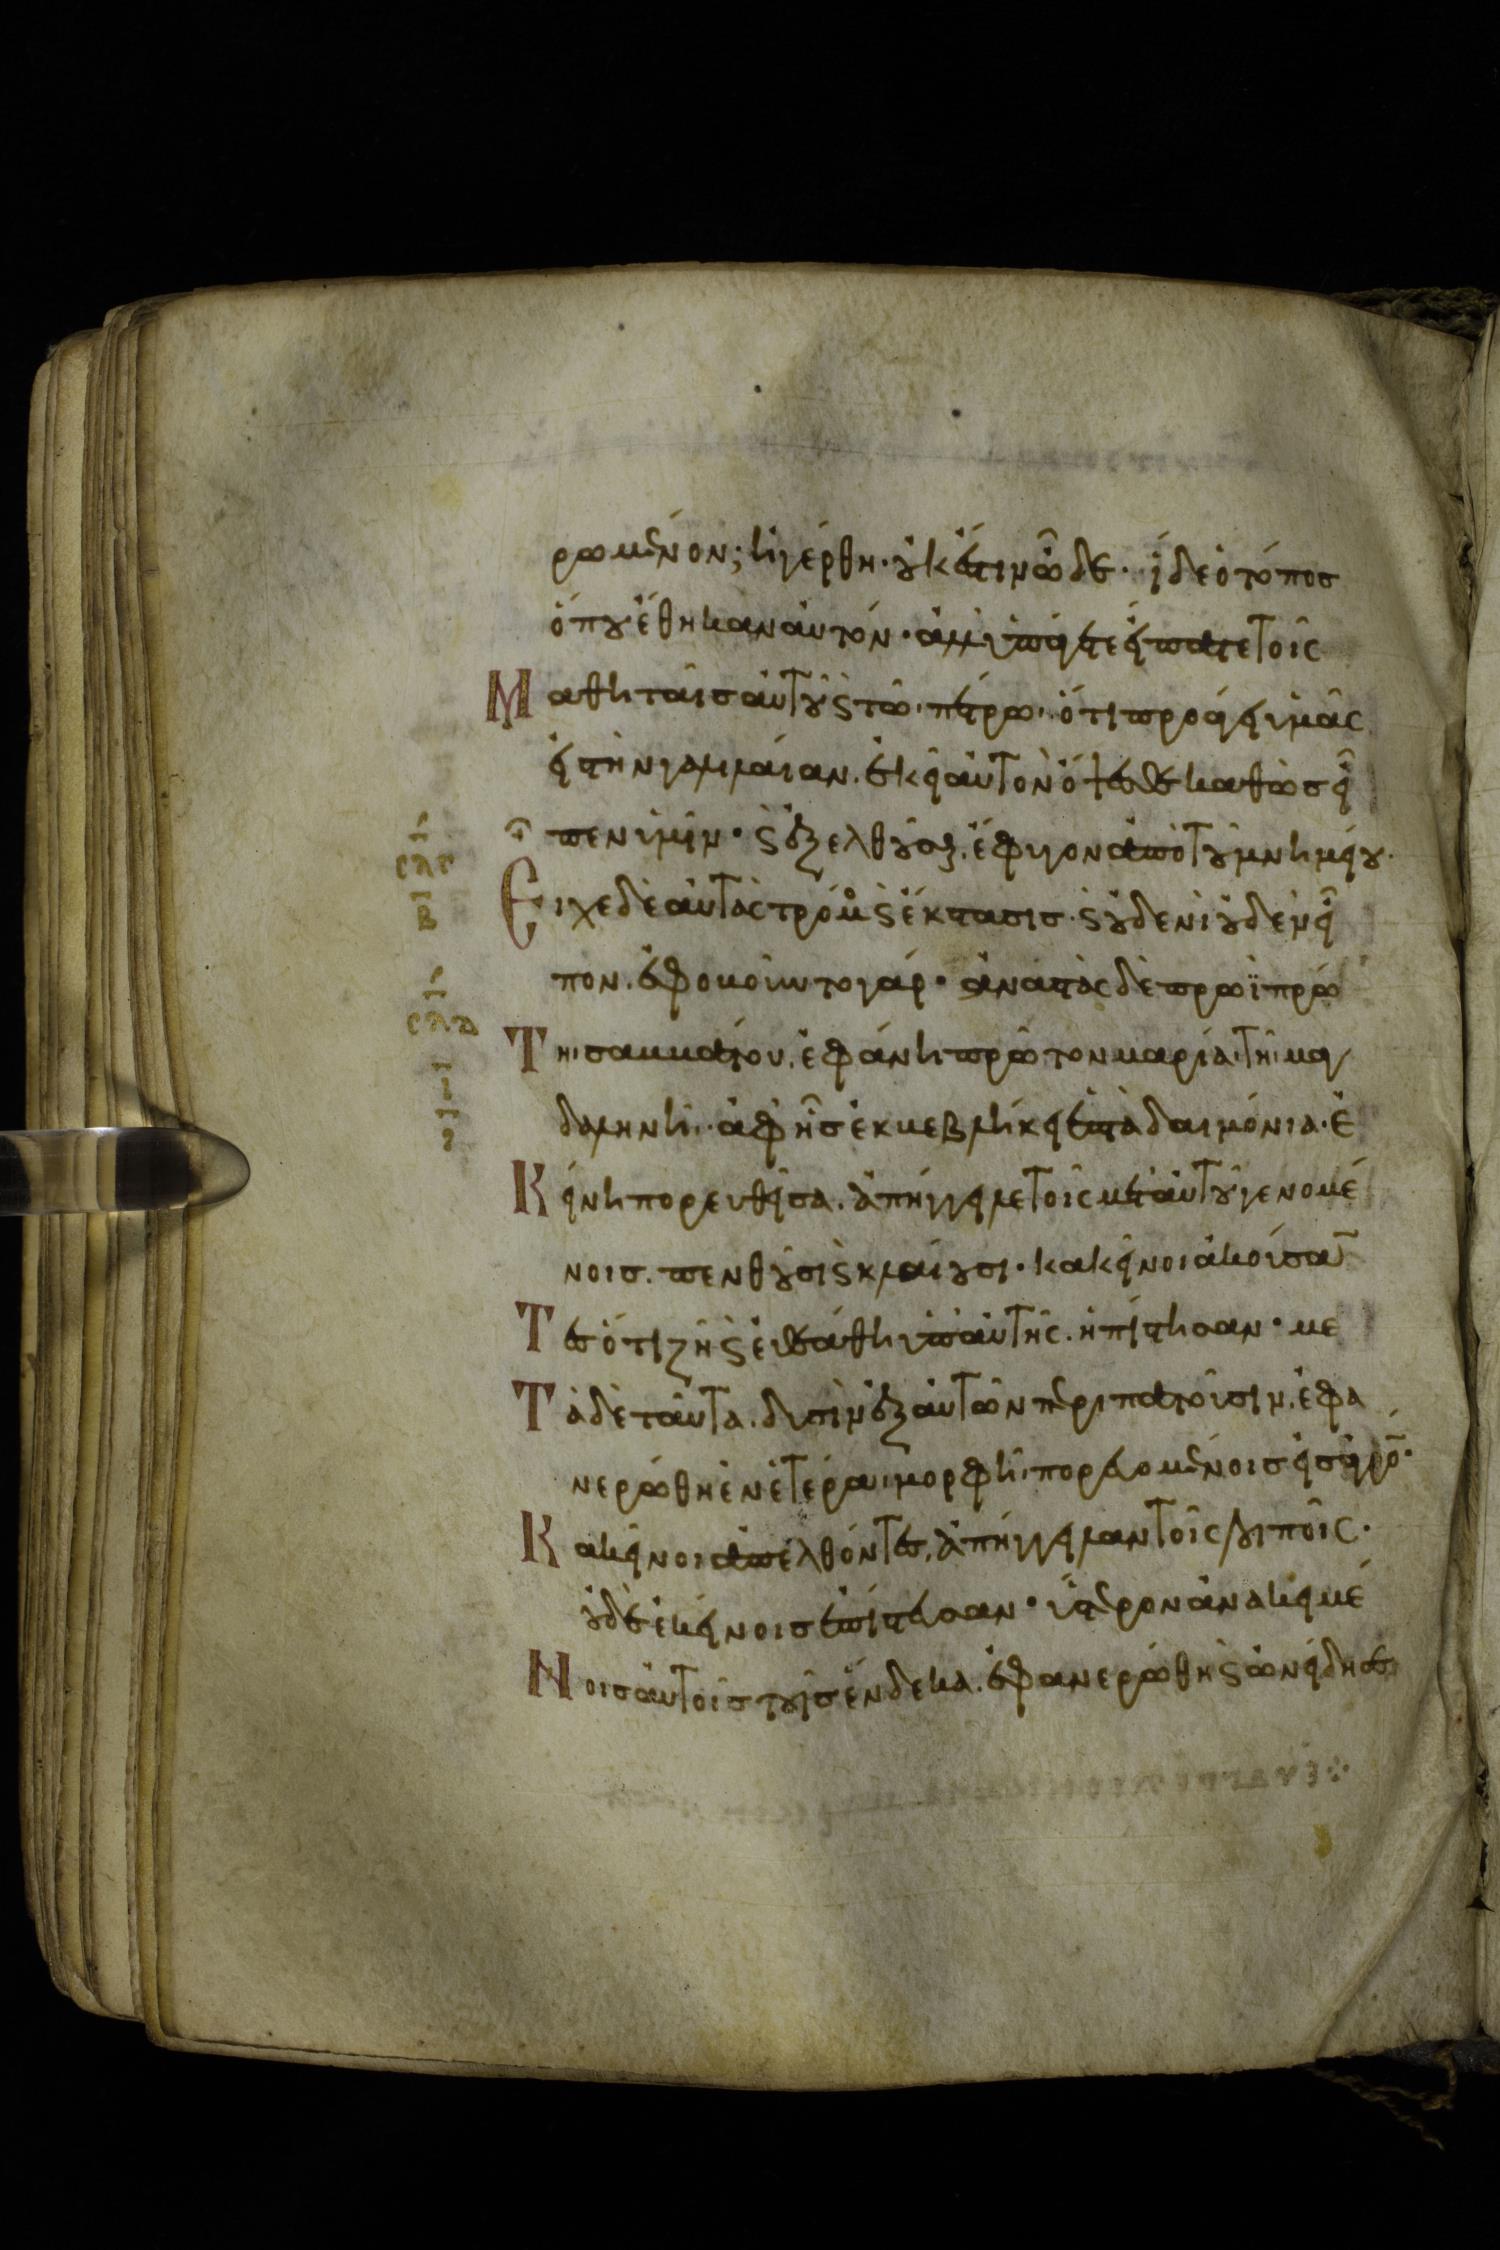 ρωμένον; ἠγέρθη· οὐκ ἔστιν ὧδε· ἴδε ὁ τόπος
ὅπου ἔθηκαν αὐτόν· ἀλλ' ὑπάγετε εἴπατε τοῖς
Μαθηταῖς αὐτοῦ ϗ τῶ πέτρω· ὅτι προάγει ὑμᾶς
εἰς τὴν γαλιλαίαν. ἐκεῖ αὐτὸν ὄψεσθε καθὼς εἶ
πεν ὑμῖν· ϗ ἐξελθοῦσαι, ἔφυγον ἀπὸ τοῦ μνημείου·
Εἶχε δὲ αὐτὰς τρόμος ϗ ἔκστασις· ϗ οὐδενὶ οὐδὲν εἶ
πον. ἐφοβοῦντο γάρ· ἀναστὰς δὲ πρωῒ πρώ
Τη σαββάτου, ἐφάνη πρῶτον μαρία τῆ μα
γδαληνῆ· ἀφ' ἧς ἐκβεβλήκει ἑπτὰ δαιμόνια· ἐ
Κείνη πορευθεῖσα. ἀπήγγειλε τοῖς μετ' αὐτοῦ γενομέ
νοις. πενθοῦσι ϗ κλαίουσι· κακεῖνοι ἀκούσαν
Τες ὅτι ζῆ ϗ ἐθεάθη ὑπ' αὐτῆς. ἠπίστησαν· με
Τὰ δὲ ταῦτα. δυσὶν ἐξ αὐτῶν περιπατοῦσιν, ἐφα
νερώθη ἐν ἑτέρα μορφῆ· πορευομένοις εἰς ἀγρόν·
Κακεῖνοι ἀπελθόντες, ἀπήγγειλαν τοῖς λοιποῖς·
οὐδὲ ἐκείνοις ἐπίστευσαν· ὕστερον ἀνακειμέ
Νοις αὐτοῖς τοῖς ἕνδεκα. ἐφανερώθη ϗ ὠνείδησε